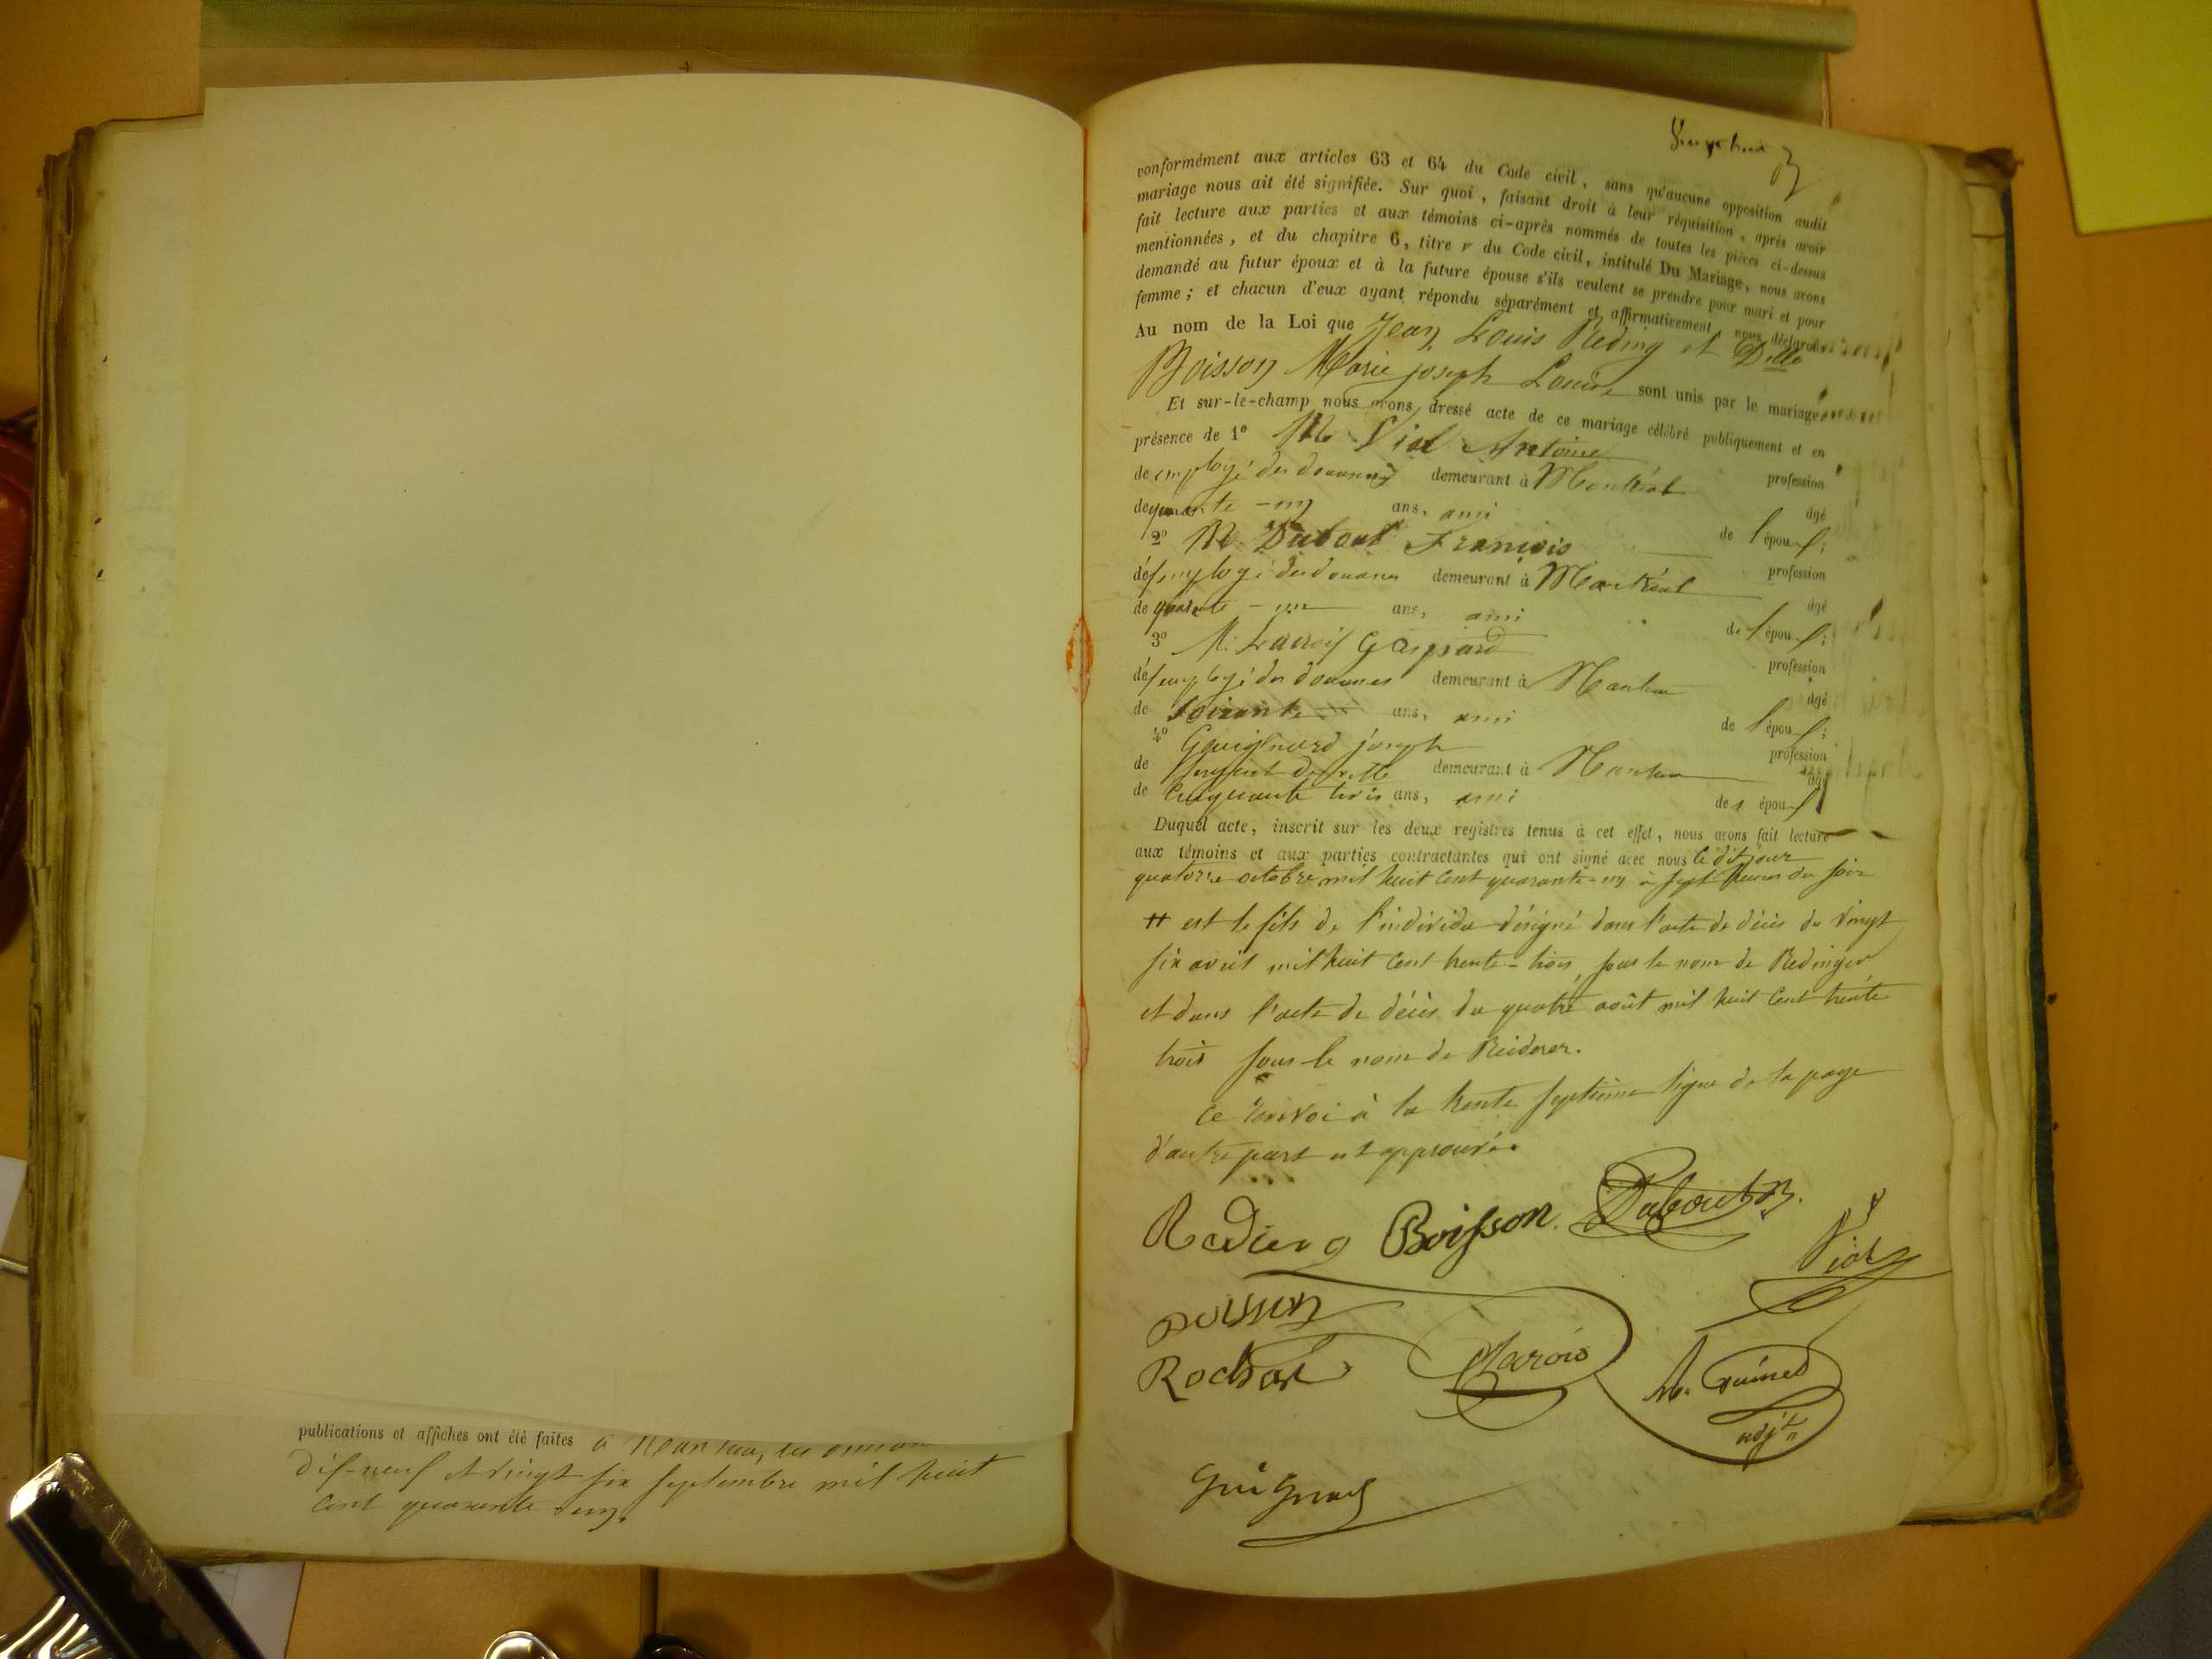 publications et affiches ont été faites à
dix-neuf et vingt six septembre mil huit
cent quarante-un.
conformément aux articles 63 et 64 du Code civil, sans qu'aucune opposition audit
mariage nous ait été signifiée. Sur quoi, faisant droit à leur réquisition, après avoir
fait lecture aux parties et aux témoins ci-après nommés de toutes les pièces ci-dessus
mentionnées, et du chapitre 6, titre v du Code civil, intitulé Du Mariage, nous avons
demandé au futur époux et à la future épouse s'ils veulent se prendre pour mari et pour
femme; et chacun d'eux ayant répondu séparément et affirmativement, nous déclarons
Au nom de la Loi que Jean Louis Reding et Dlle
Boisson Marie joseph Louise sont unis par le mariage
Et sur-le-champ nous avons dressé acte de ce mariage célébré publiquement et en
présence de 1º M. Viol Antoine
profession
de employé des douanes demeurant à Montréal
âgé
de quarante-un ans, ami de l'épou
2º M. Dubout François
profession
d'employé des douanes demeurant à Montréal
âgé
de quarante-un ans, ami de l'épou
3º M. Gaspard
profession
d'employé des douanes demeurant à Nantua
âgé
de soixante ans, ami de l'épou
4º Guignard joseph
profession
de sergent de ville demeurant à Nantua
âgé
de Cinquante trois ans, ami des épou
Duquel acte, inscrit sur les deux registres tenus à cet effet, nous avons fait lecture
aux témoins et aux parties contractantes qui ont signé avec nous le dit jour
quatorze octobre mil huit cent quarante-un à sept heures du soir
# est le fils de l'individu désigné dans l'acte de décès du vingt
six avril mil huit cent trente-trois, sous le nom de Redinger
et dans l'acte de décès du quatre août mil huit cent trente
trois sous le nom de Reiderer.
Ce renvoi à la trente septième ligne de la page
d'autre part est approuvé.
Reding Boisson Dubout
Viol
Boisson
Rochat Marois
adjt
Guignard